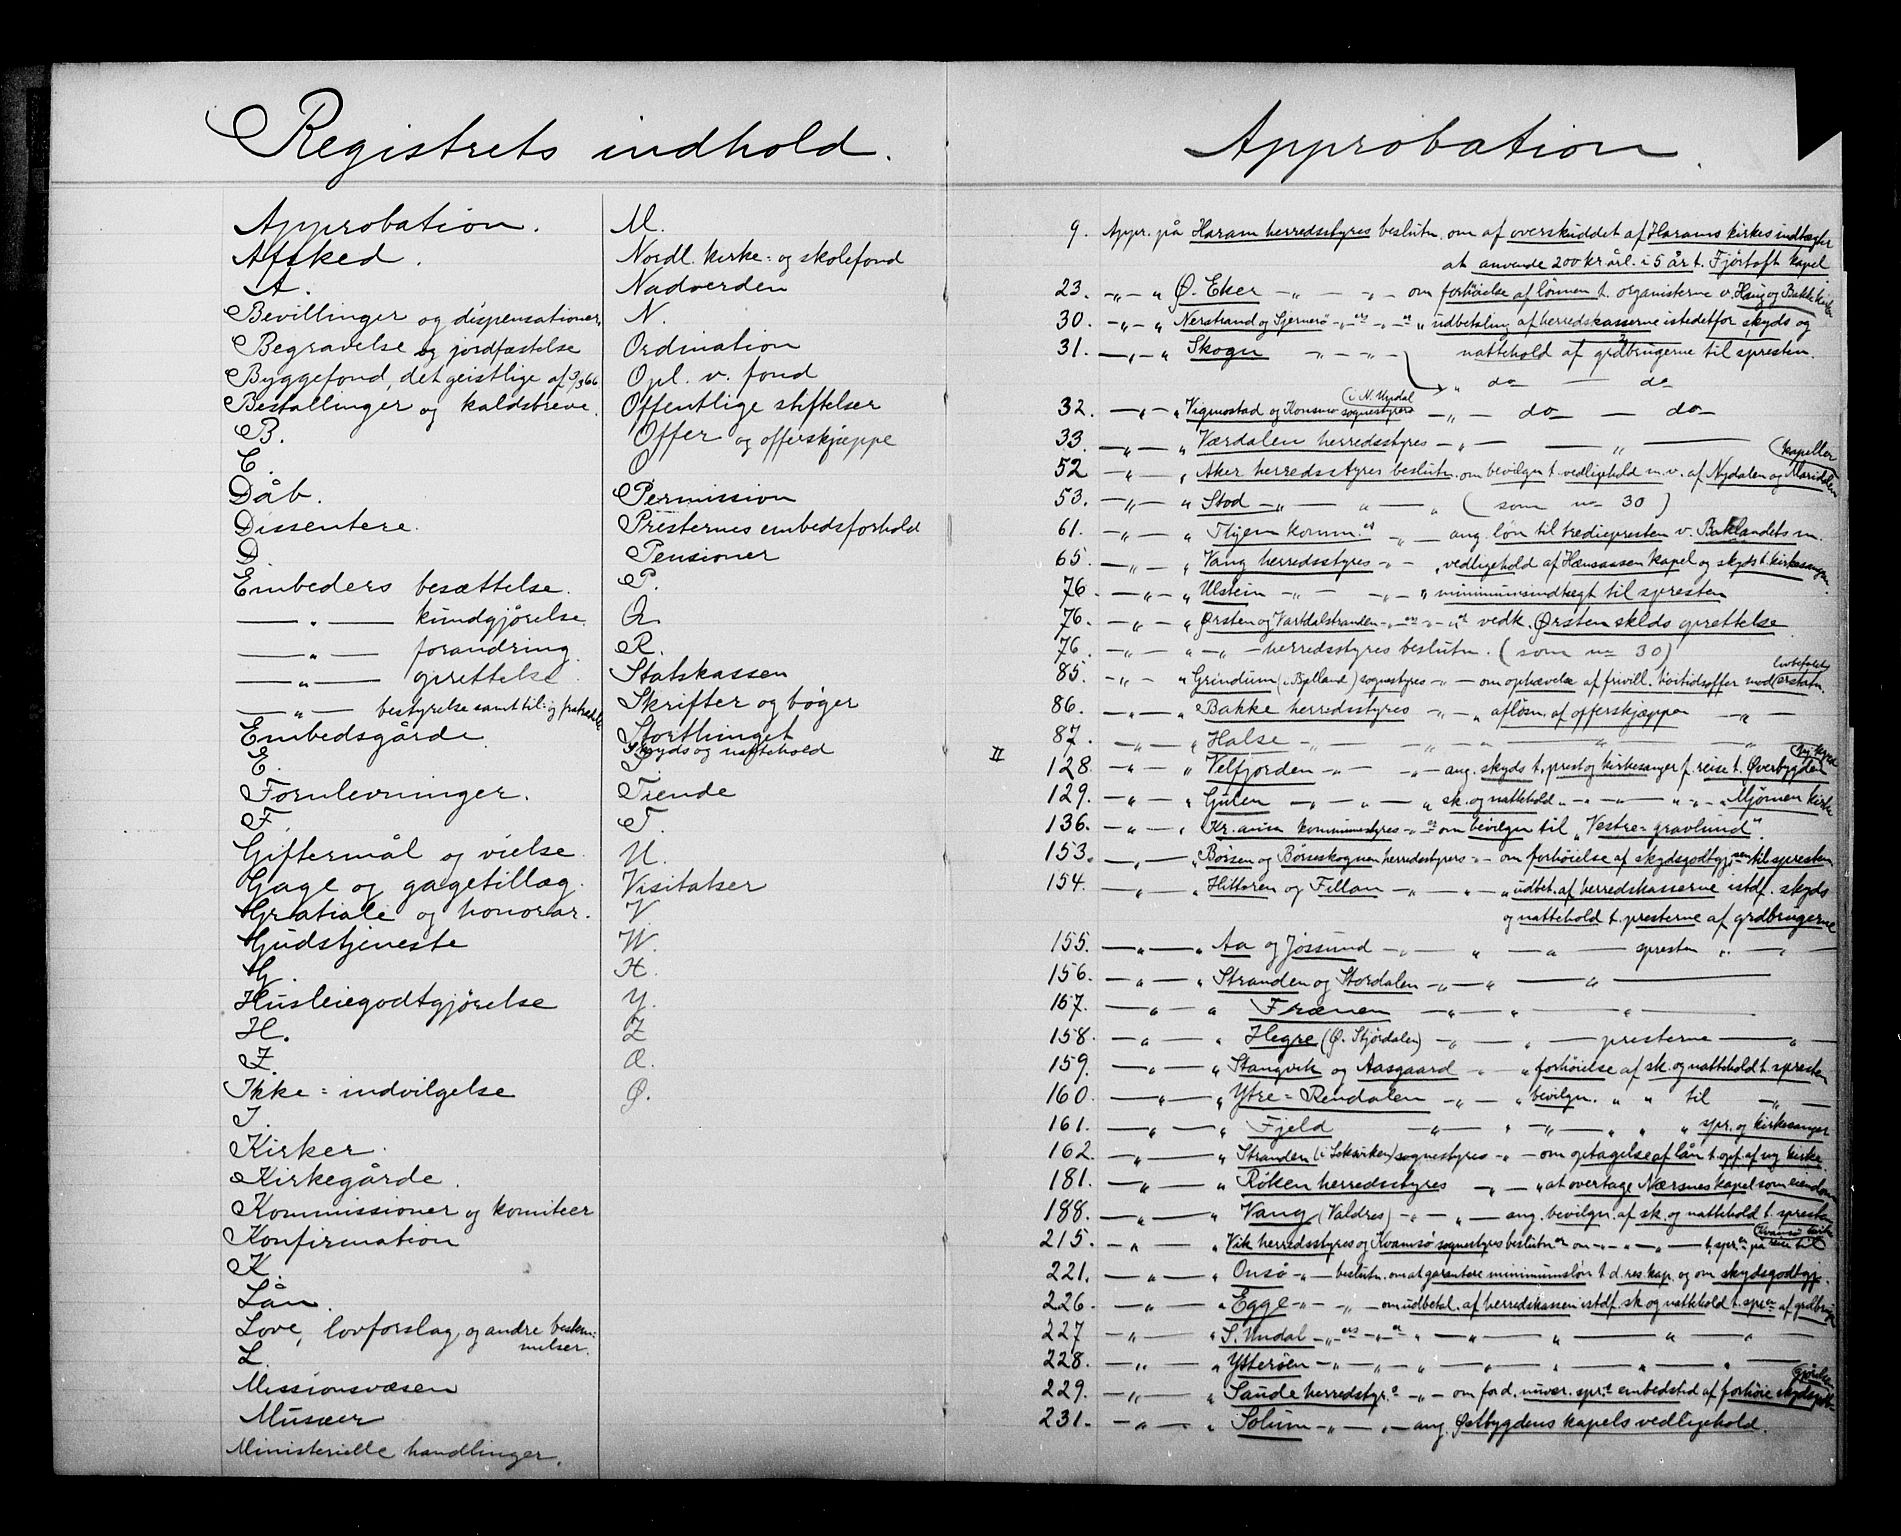 Registrets indhold.
Approbation.
Afsked.
A.
Bevillinger og dispensationer.
Begravelse og jordfæstelse
Byggefond, det geistlige af 3/3 66
Bestallinger og kaldsbreve.
B.
C.
Dåb.
Dissentere.
D.
Embeders besættelse.
— „ — kundgjørelse.
— „ — forandring.
— „ — oprettelse.
— „ — bestyrelse samt til- og fratrædelse
Embedsgårde.
E.
Fornlevninger.
F.
Giftermål og vielse.
Gage og gagetillæg.
Gratiale og honorar.
Gudstjeneste
G.
Husleiegodtgjørelse
H.
I.
Ikke-indvilgelse
J.
Kirker.
Kirkegårde.
Kommissioner og komiteer
Konfirmation
K.
Lån.
Love, lovforslag og andre bestem-
melser.
L.
Missionsvæsen
Musæer
Ministerielle handlinger.
M.
Nordl. kirke- og skolefond
Nadverden
N.
Ordination
Opl. v. fond
Offentlige stiftelser
Offer og offerskjæppe
O
Permission
Presternes embedsforhold
Pensioner
P.
Q.
R.
Statskassen
Skrifter og bøger
Storthinget
Skyds og nattehold
S.
Tiende
T.
U.
Visitatser
V.
W.
X.
Y.
Z
Æ.
Ø.
Approbation.
9. Appr. på Haram herredsstyres beslutn. om af overskuddet af Harams kirkes indtægter
at anvende 200 kr årl. i 5 år t. Fjørtoft kapel
23. -„- „ Ø. Eker -„- — -„- om forhøielse af lønnen t. organisterne v. Haug og Bakke kirker
30. -„- „ Nerstrand og Sjernerø -„- ers -„- er „ udbetaling af herredskasserne istedetfor skyds og
31. —„- „ Skogn -„- -„- nattehold af grdbrugerne til spresten.
„ do — do
32. —„- „ Vigmostad og Konsmo sognestyrers (i N. Undal -„- do — do
33. —„— „ Værdalen herredsstyres -„- — — „ —
52 -„- „ Aker herredsstyres beslutn. om bevilgn t. vedligehold m.v. af Nydalen og Maridalen kapeller
53. -„- „ Stod -„- „ — „ (som no 30)
61. -„- „ Thjem komm.es -„- ang. løn til trediepresten v. Baklandets m.
65. -„- „ Vang herredsstyres -„- „ vedligehold af Hænsaasen kapel og skyds t. kirkesanger.
76. -„- „ Ulstein -„- -„- „ minimumsindtægt til spresten
76. -„- „ Ørsten og Vartdalstranden -„- ers -„- er vedk. Ørsten sklds oprettelse
76. -„- „ -„- herredsstyres beslutn. (som no 30)
85. -„- „ Grindum (i Bjelland) sognestyres -„- om ophævelse af frivill. høitidsoffer mod erstatn.
86. -„- „ Bakke herredsstyres -„- „ afløsn. af offerskjæppen -„-
87. -„- „ Halse -„- -„- „ „ „
II
128. -„- „ Velfjorden -„- -„- ang. skyds t. prest og kirkesanger f. reise t. Øverbygden ny kirke
129. -„- „ Gulen -„- -„- „ sk. og nattehold -„- -„- „ -„- Mjømen kirke
136. -„- „ Kr.ania kommunestyres -„- er om bevilgn til „Vestre-gravlund“.
153. -„- „ Børsen og Børseskognen herredsstyrers -„- om forhøielse af skydsgodtgj.sen til spresten
154. -„- „ Hitteren og Fillan -„- „ - „ udbet. af herredskasserne istdf. skyds
og nattehold t. presterne af grdbrugerne
155. -„- „ Aa og Jøssund -„- „ — „ — spresten „ — „ —
156. -„- „ Stranden og Stordalen -„- „ — „ —
157. -„- „ Frænen -„- „ — „ —
158. -„- „ Hegre (Ø. Stjørdalen) -„- „ — presterne — „ —
159. -„- „ Stangvik og Aasgaard -„- „ forhøielse af sk. og nattehold t. spresten
160. -„- „ Ytre-Rendalen -„- „ bevilgn. „ „ til -„-
161. -„- „ Fjeld -„- „ -„- „ „ „ spr. og kirkesanger
162. -„- „ Stranden (i Leksviken) sognestyres -„- om optagelse af lån t. opf. af ny kirke.
181. -„- „ Røken herredsstyres -„- „ at overtage Nærsnes kapel som eiendom
188. -„- „ Vang (Valdres) -„- „ — ang. bevilgn. af sk. og nattehold t. spresten
215. -„- „ Vik herredsstyres og Kvamsø sognestyres beslutn er om -„- „ -„- t. spr.n på reise til Kvamsø kirke
221. -„- „ Onsø -„- beslutn. om at garantere minimumsløn t. d. res. kap. og om skydsgodtgj.
226. -„- „ Egge -„- -„- om udbetal. af herredskassen istdf. sk. og nattehold t. spren af grdbrugn
227 -„- „ S. Undal -„- ers -„- er „ „ „ „
228. -„- „ Ytterøen -„- -„- „ „ „ „
229. -„- „ Saude herredstyr.s -„- om for d. nuvær. spr.s embedstid af forhøie skydsgodtgjørelse
231. -„- „ Solum -„- — „ — ang. Østbygdens kapels vedligehold.